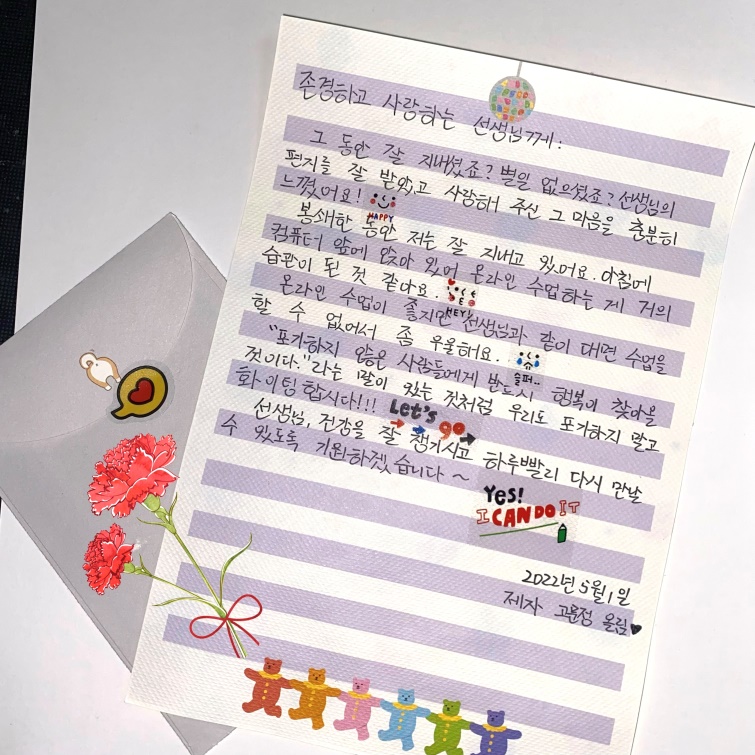 존경하고 사랑하는 선생님께:
그 동안 잘 지내셨죠? 별일 없으셨죠? 선생님의
편지를 잘 받았고 사랑해 주신 그 마음을 충분히
느꼈어요!
HAPPY
봉쇄한 동안 저는 잘 지내고 있어요. 아침에
컴퓨터 앞에 앉아 있어 온라인 수업하는 게 거의
습관이 된 것 같아요.
HEY!
온라인 수업이 좋지만 선생님과 같이 대면 수업을
할 수 없어서 좀 우울해요.
슬퍼..
"포기하지 않은 사람들에게 반드시 행복이 찾아올
것이다."라는 말이 있는 것처럼 우리도 포기하지 말고
화이팅합시다!!! Let's go
선생님, 건강을 잘 챙기시고 하루빨리 다시 만날
수 있도록 기원하겠습니다~
Yes!
I CAN DO IT
2022년 5월 1일
제자 고운정 올림♥